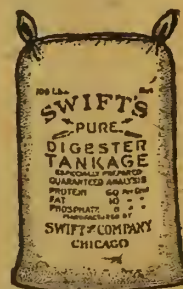 100 Lbs.
SWIFT'S
PURE
DIGESTER
TANKAGE
ESPECIALLY PREPARED
GUARANTEED ANALYSIS
PROTEIN 60 Per Cent
FAT 10 " "
PHOSPHATE 6 " "
MANUFACTURED BY
SWIFT & COMPANY
CHICAGO